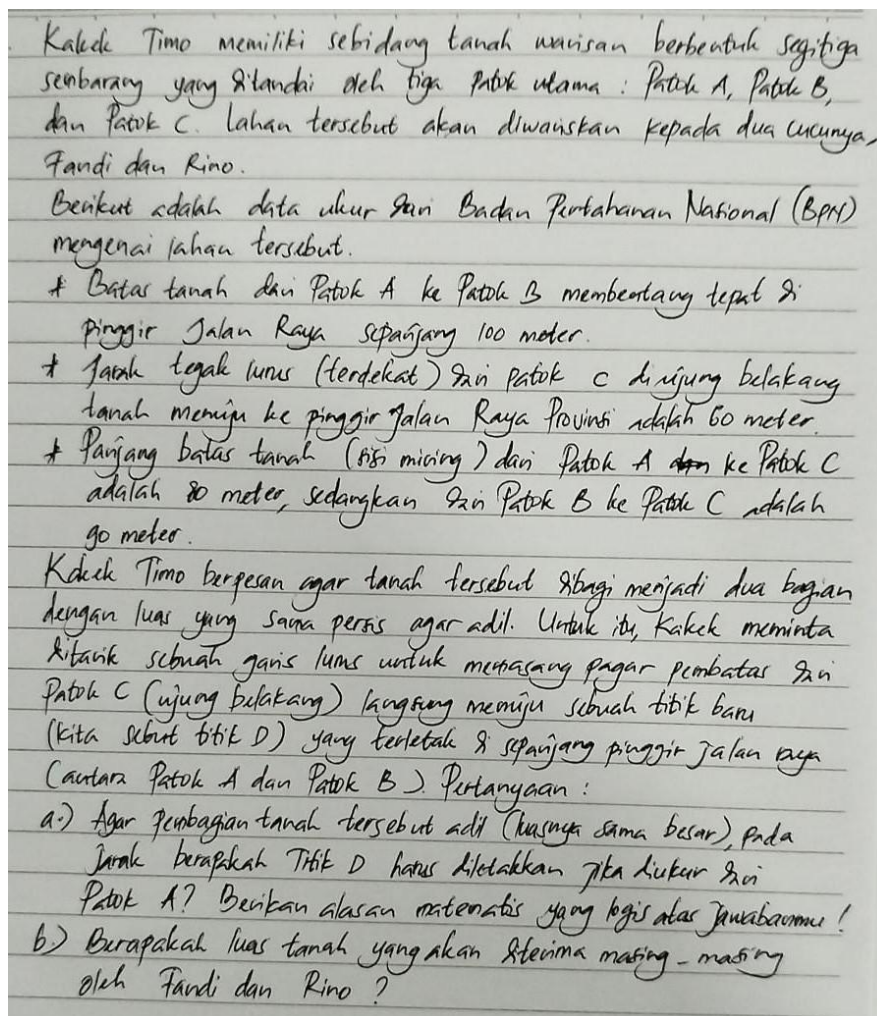 Kakek Timo memiliki sebidang tanah warisan berbentuk segitiga
sembarang yang ditandai oleh tiga Patok utama : Patok A, Patok B,
dan Patok C. Lahan tersebut akan diwariskan kepada dua cucunya,
Fandi dan Rino.
Berikut adalah data ukur dari Badan Pertahanan Nasional (BPN)
mengenai lahan tersebut.
* Batas tanah dari Patok A ke Patok B membentang tepat di
pinggir Jalan Raya sepanjang 100 meter.
* Jarak tegak lurus (terdekat) dari patok C di ujung belakang
tanah menuju ke pinggir Jalan Raya Provinsi adalah 60 meter.
* Panjang batas tanah (sisi miring) dari Patok A ke Patok C
adalah 80 meter, sedangkan dari Patok B ke Patok C adalah
90 meter.
Kakek Timo berpesan agar tanah tersebut dibagi menjadi dua bagian
dengan luas yang sama persis agar adil. Untuk itu, Kakek meminta
ditarik sebuah garis lurus untuk memasang pagar pembatas dari
Patok C (ujung belakang) langsung menuju sebuah titik baru
(kita sebut titik D) yang terletak di sepanjang pinggir jalan raya
(antara Patok A dan Patok B). Pertanyaan :
a.) Agar pembagian tanah tersebut adil (luasnya sama besar), pada
jarak berapakah Titik D harus diletakkan jika diukur dari
Patok A? Berikan alasan matematis yang logis atas jawabanmu!
b.) Berapakah luas tanah yang akan diterima masing-masing
oleh Fandi dan Rino ?